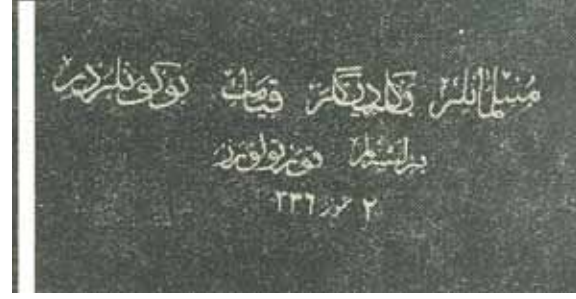 مسلمانلر بكلديگكز قيامت بوكونلردر
برلشلم قورتولورز
٢ تموز ٣٣٦